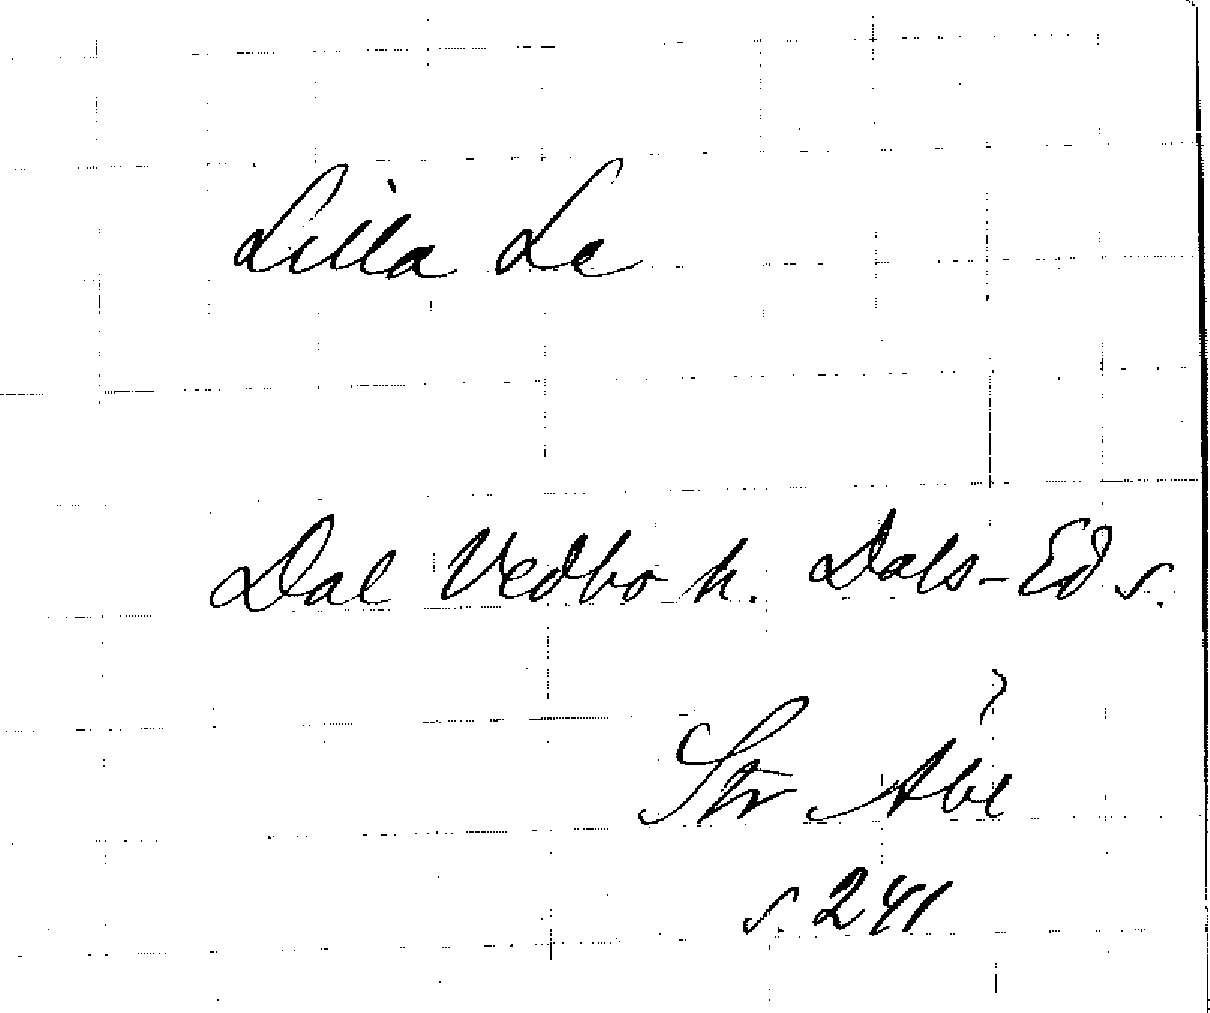 Lilla Le
Dal Vedbo h. Dals-Ed s.
Str Åbe
s. 241